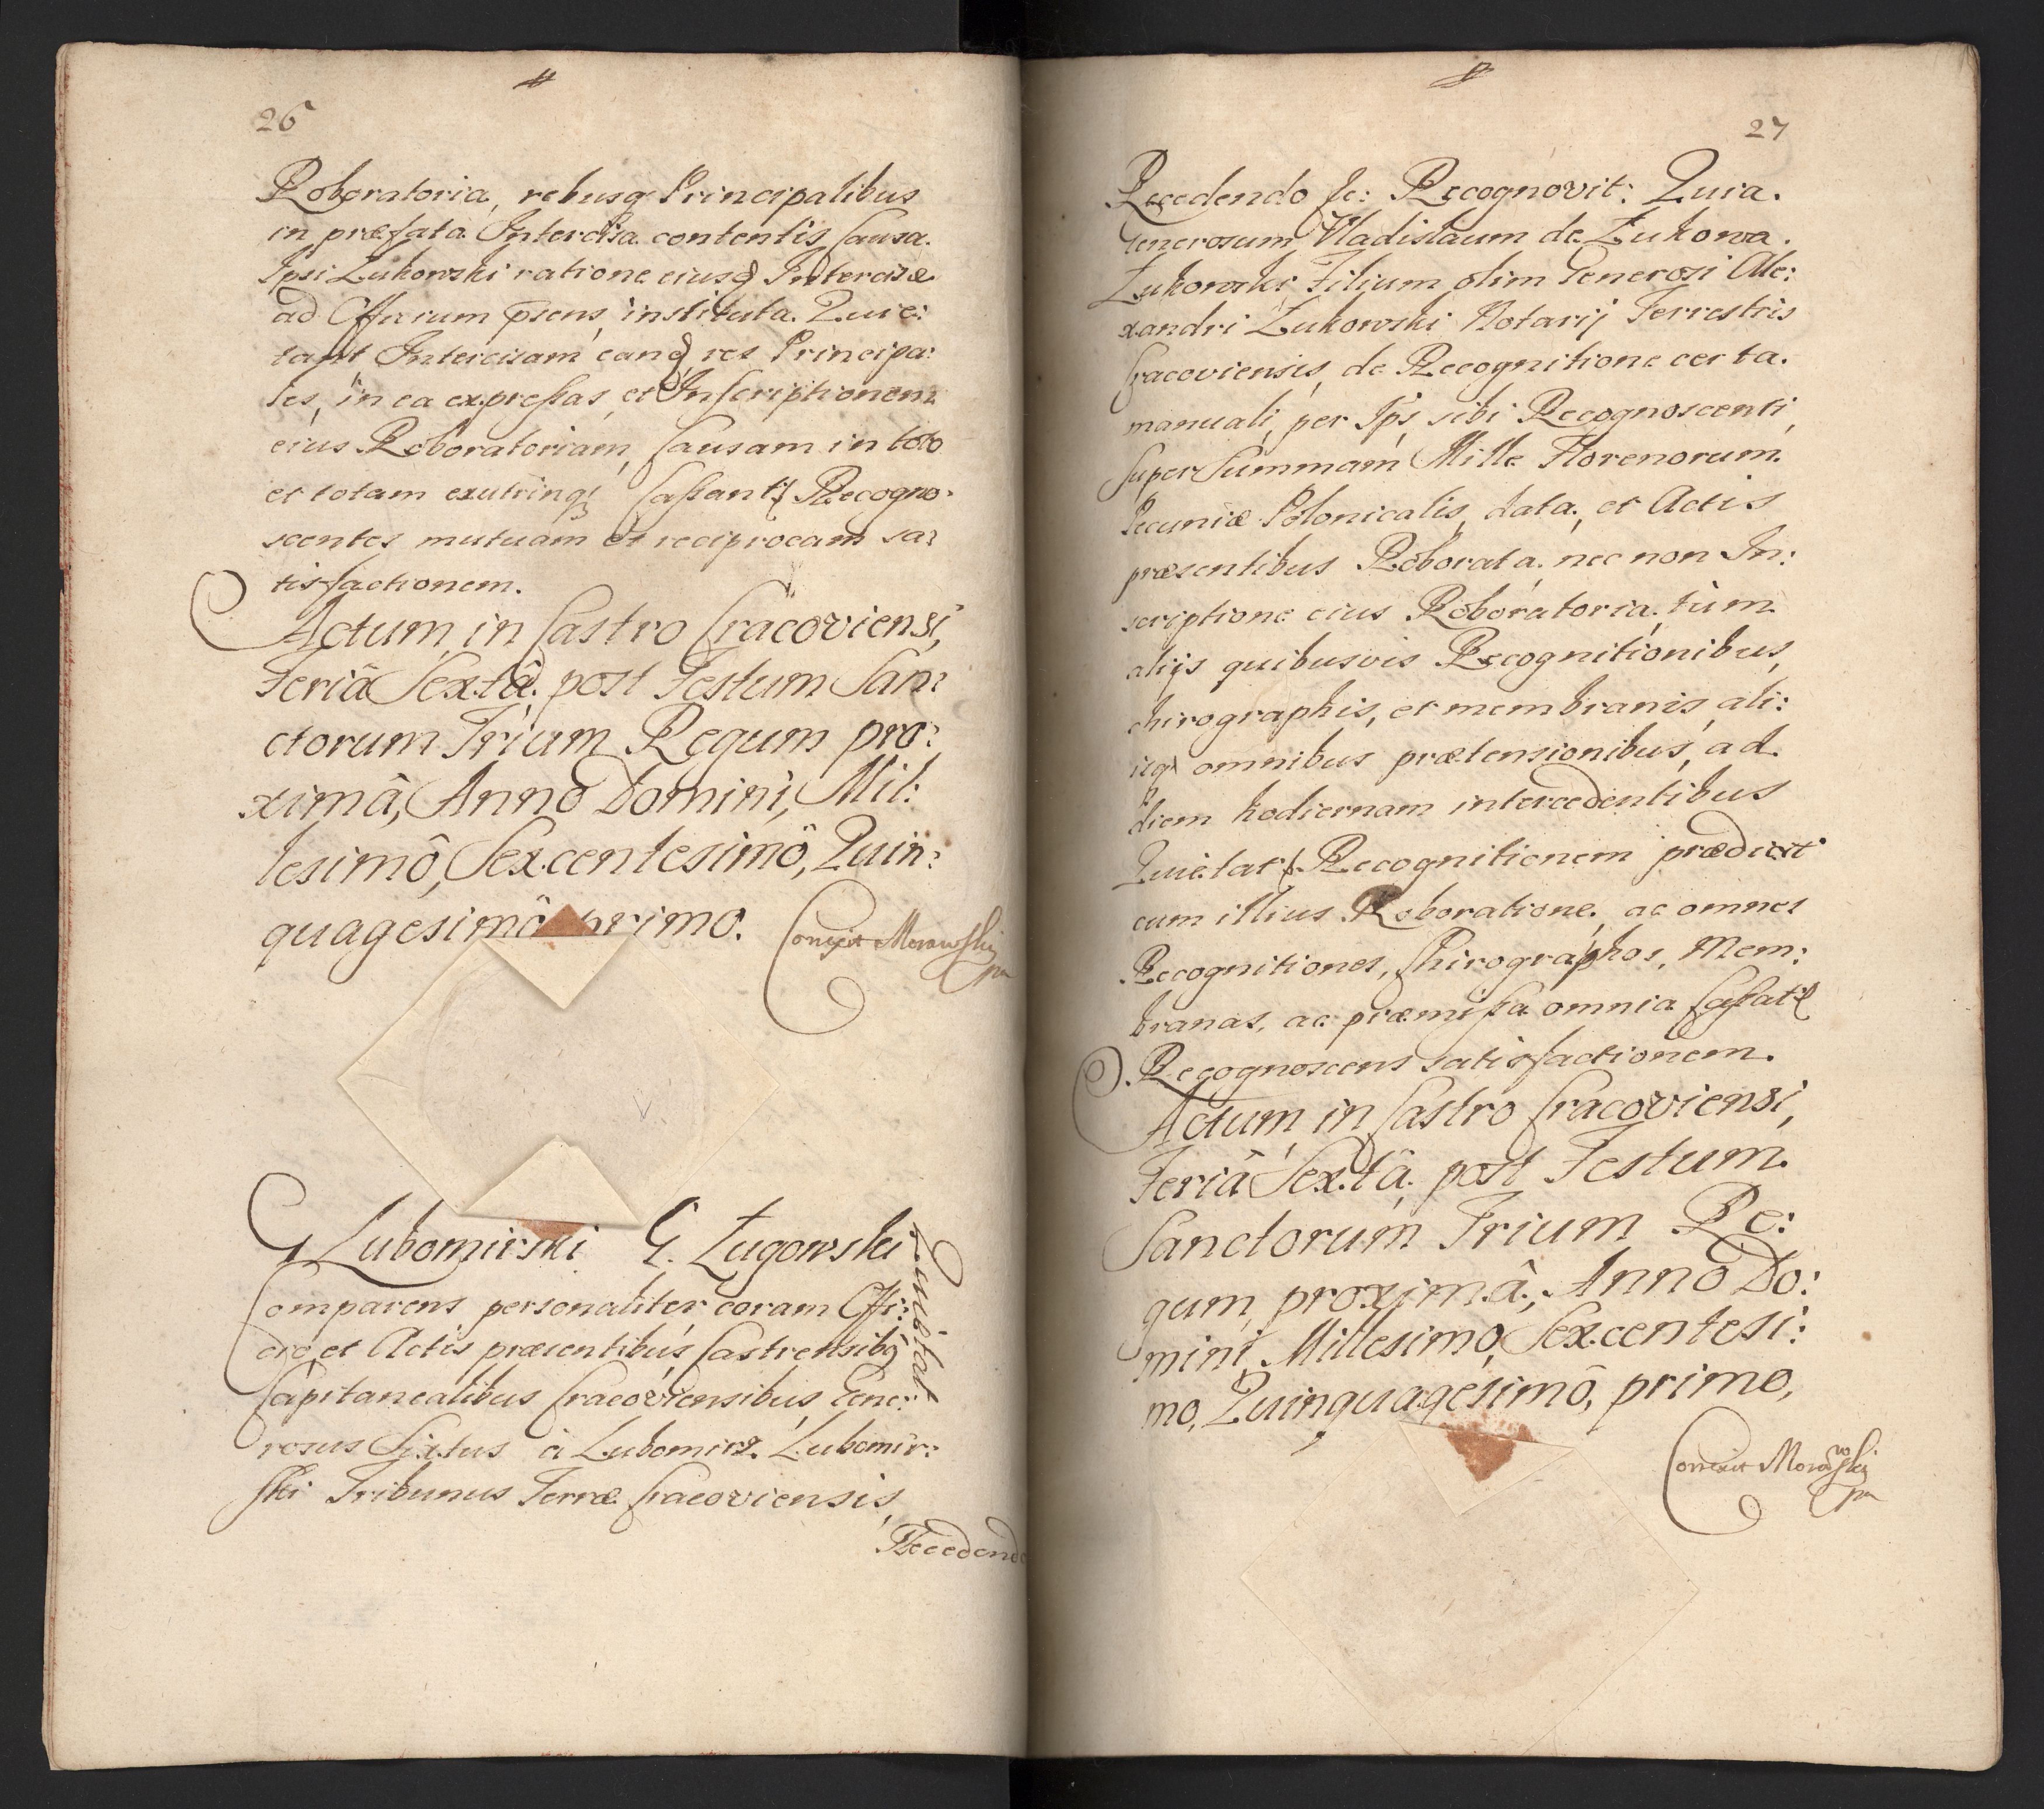 26
Roboratoria, rebusq Principalibus
in præfata Intercisa contentis, Causa
Ipsi Zukowski ratione eiusq Intercisæ
ad Officium p̄sens, instituta. Quie:
tant, Intercisam eanq res Principa:
les, in ea expressas, et Inscriptionem
eius Roboratoriam, Causam in toto
et totam exutrinq, Cassant, Recogno:
scentes mutuam et reciprocam sa:
tisfactionem.
Actum, in Castro Cracoviensi,
Feriâ Sextâ, post Festum San:
ctorum Trium Regum pro:
ximâ, Anno Domini, Mil:
lesimô, Sexcentesimô, Quin:
quagesimô primo. Correxit Morawski
G Lubomirski G. Zugowski
Quietat
Comparens personaliter, coram Offi:
cio et Actis præsentibus, Castrensibq
Capitanealibus Cracoviensibus, Gene:
rosus Sixtus à Lubomirz Lubomir:
ski Tribunus Terræ Cracoviensis,
Recedendo
27
Recedendo &c: Recognovit: Quia
Generosum Vladislaum de Zukowa
Zukowski Filium olim Generosi Ale:
xandri Zukowski Notarij Terrestris
Cracoviensis, de Recognitione certa
manuali, per Ips, sibi Recognoscenti,
super Summam Mille Florenorum
Pecuniæ Polonicalis, data, et Actis
præsentibus Roborata, nec non In:
scriptione eius Roboratoria, tùm
alijs quibusvis Recognitionibus,
chirographis, et membranis, ali:
isq omnibus prætensionibus, ad
diem hodiernam intercedentibus
Quietat, Recognitionem prædict
cum illius Roboratione, ac omnes
Recognitiones, Chirographos, Mem:
branas, ac præmissa omnia Cassat
Recognoscens satisfactionem.
Actum, in Castro Cracoviensi,
Feriâ Sextâ, post Festum
Sanctorum Trium Re:
gum, proximâ, Anno Do:
mini, Millesimo, Sexcentesi:
mo, Quinquagesimô, primo,
Correxit Morawski